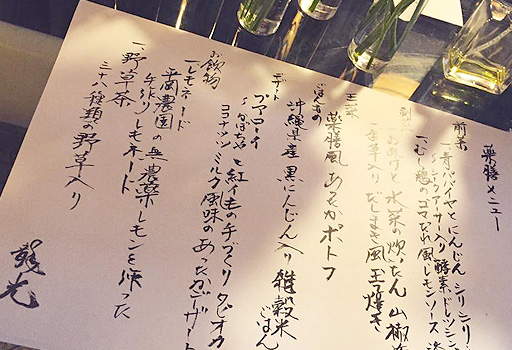 薬膳メニュー
前菜
一、青パパイヤとにんじんシリシリ
〜シークワーサー入り酵素ドレッシング
一、むし鶏のゴマだれ風レモンソース
副菜
おあげと水菜の炊いたん 山椒
草入りだしまき風玉子焼き
主菜
薬膳風あったかポトフ
ごはんもの
沖縄県産黒にんじん入り雑穀米ごはん
デザート
ブアローイ
〜かぼちゃと紅イモの手づくりタピオカ
ココナッツミルク風味のあったかデザート
お飲物
一、レモネード
農園の無農薬レモンを使った
手作りレモネード
一、野草茶
三十八種類の野草入り